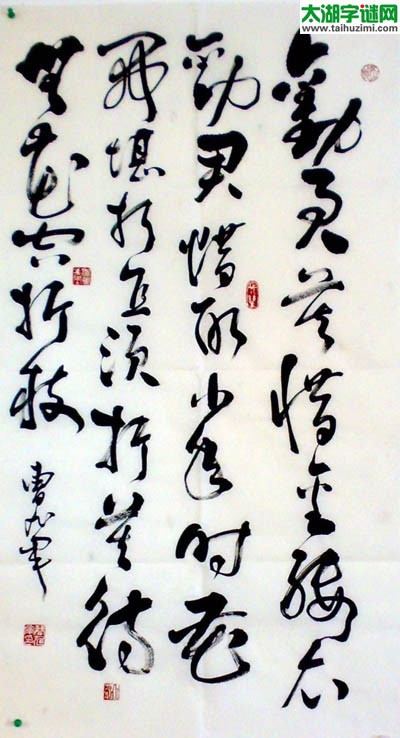 太湖字谜网
www.taihuzimi.com
勸君莫惜金縷衣
勸君惜取少年时花
開堪折直須折莫待
無花空折枝
曹